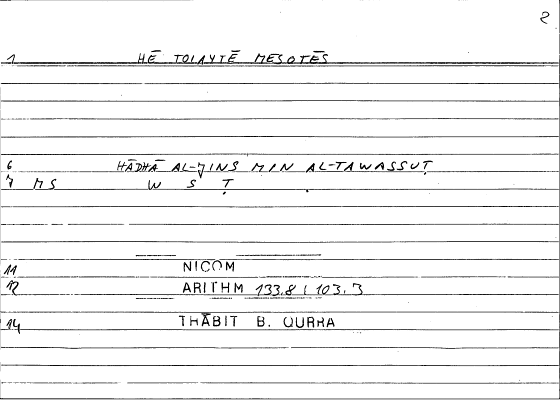 2
1 HĒ TOIAYTĒ MESOTĒS
6 HĀDHĀ AL-JINS MIN AL-TAWASSUṬ
7 MS W S Ṭ
11 NICOM
12 ARITHM 133.8 | 103.3
14 THĀBIT B. QURRA